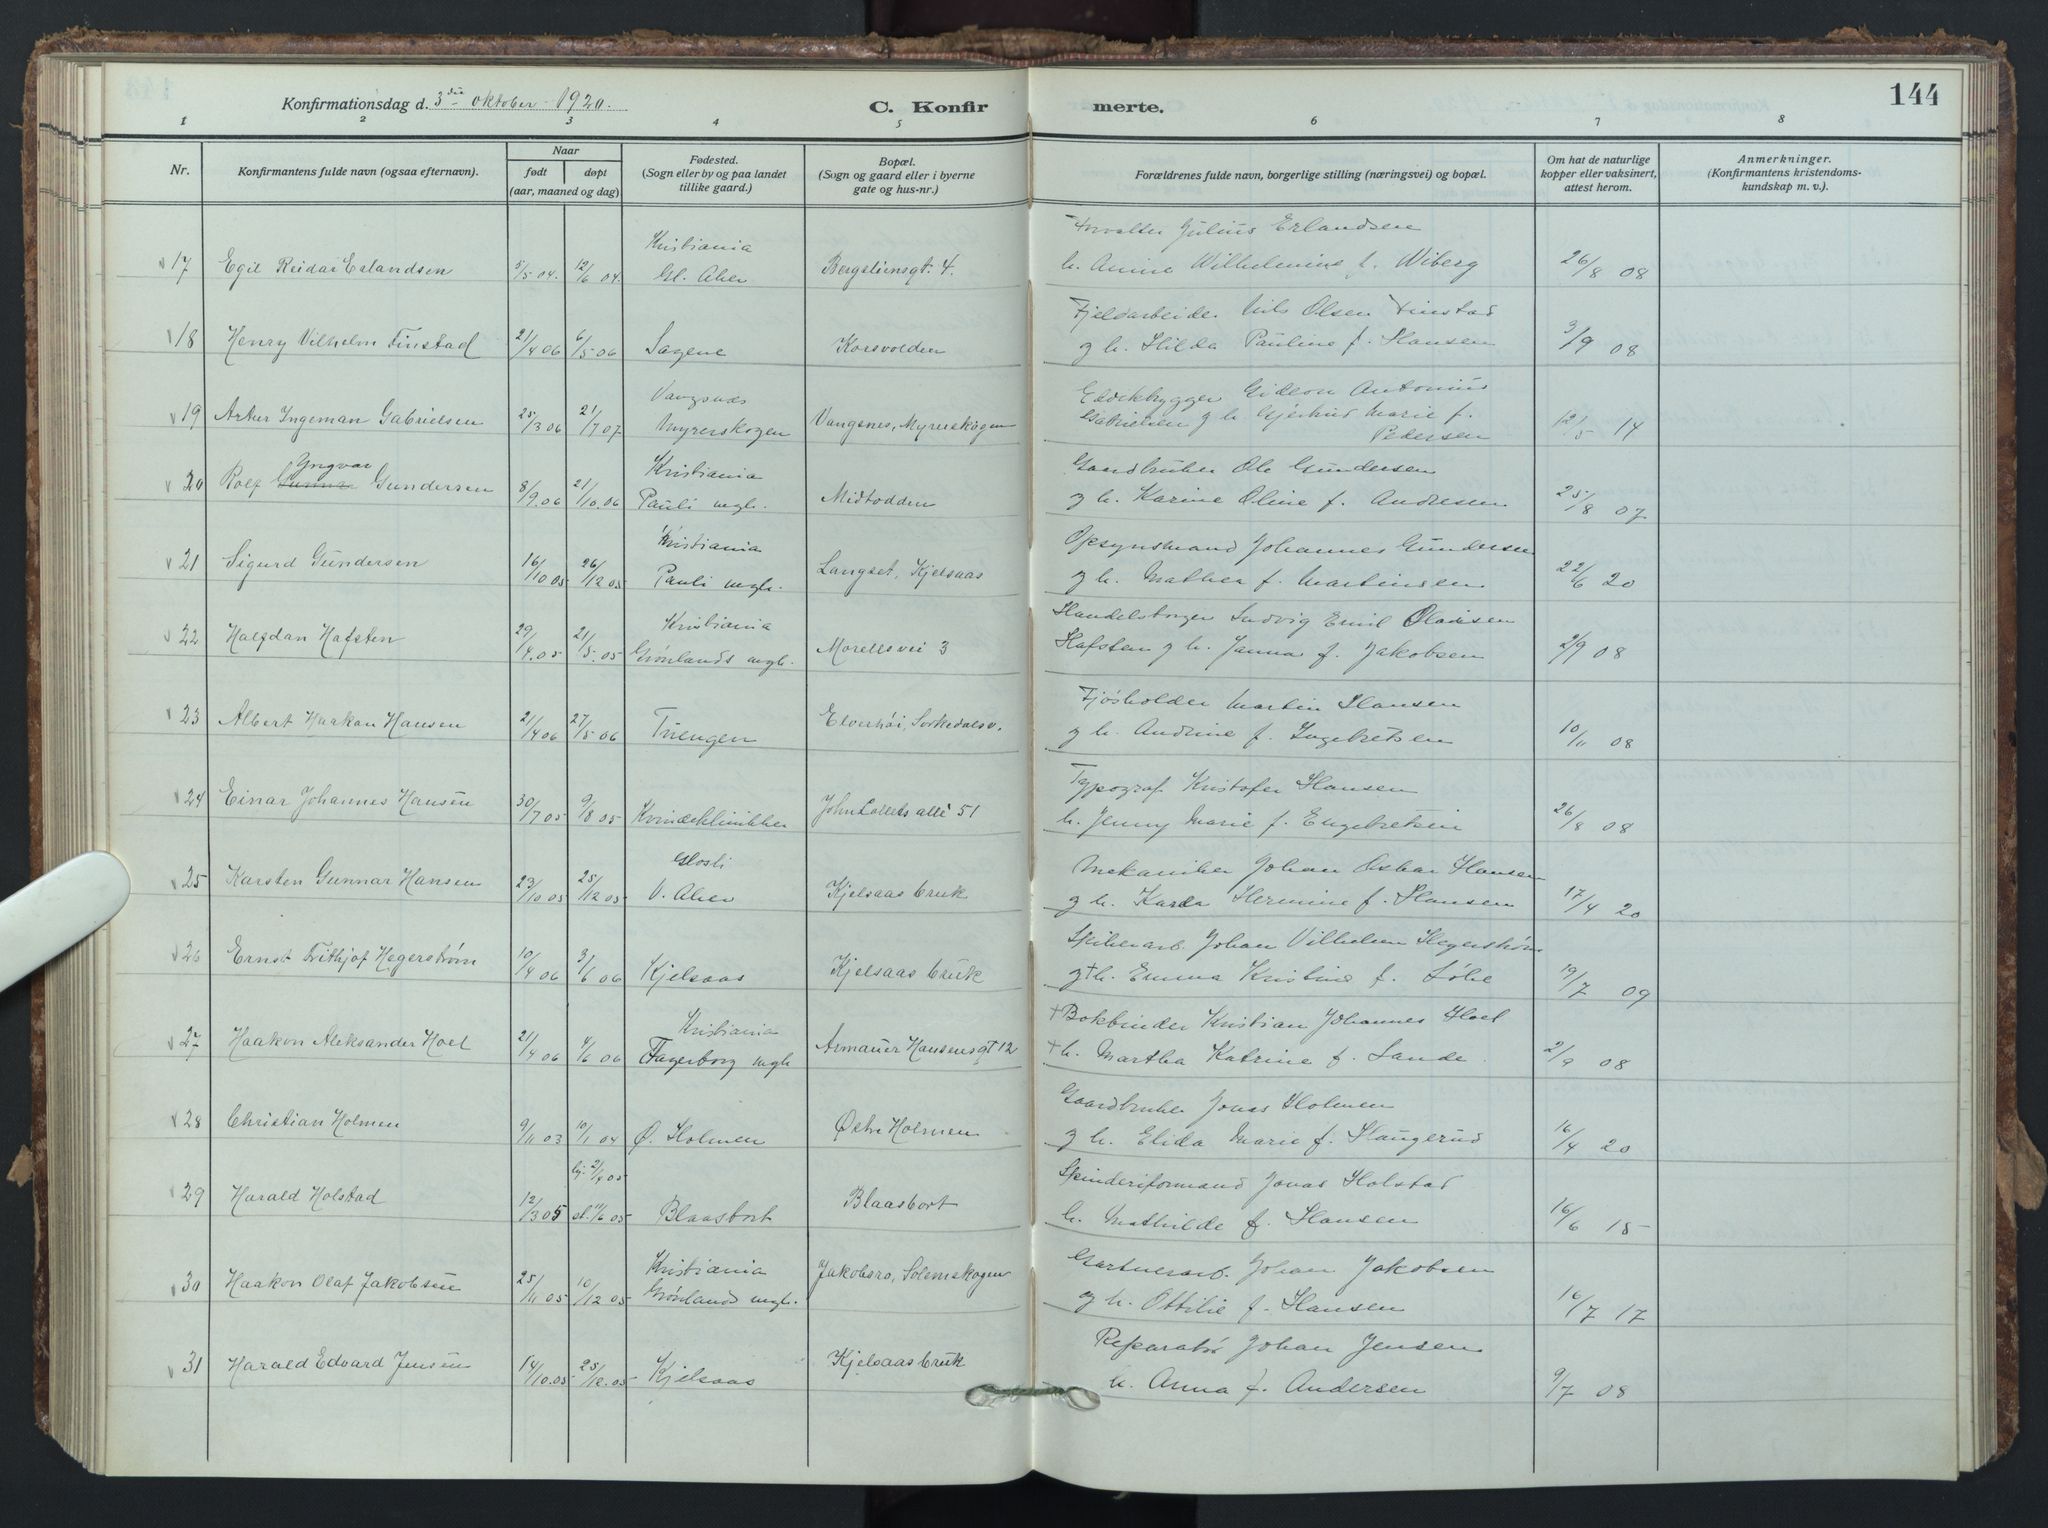 144
Konfirmationsdag d. 3die oktober 1920.
C. Konfirmerte.
1 2 3 4 5 6 7 8
Nr.
Konfirmantens fulde navn (ogsaa efternavn).
Naar
født døpt
(aar, maaned og dag)
Fødested.
(Sogn eller by og paa landet
tillike gaard.)
Bopæl.
(Sogn og gaard eller i byerne
gate og hus-nr.)
Forældrenes fulde navn, borgerlige stilling (næringsvei) og bopæl.
Om hat de naturlige
kopper eller vaksinert,
attest herom.
Anmerkninger.
(Konfirmantens kristendoms-
kundskap m. v.).
Kristiania Forvalter Julius Erlandsen
17 Egil Reidar Erlandsen 5/5 04. 12/6 04. Gl. Aker Bergsliensgt. 4. h. Anine Wilhelmine f. Wiberg 26/8 08
Fjeldarbeider Nils Olsen Finstad
18 Henry Vilhelm Finstad 21/4 06 6/5 06 Sagene Korsvolden g h. Hilda Pauline f. Hansen 3/9 08
Vangsnes Eddikbrygger Gideon Antonius
19 Artur Ingeman Gabrielsen 25/3 06 21/7 07 Myrerskogen Vangsnes, Myrerskogen Gabrielsen g h. Gjerhud Marie f.
Pedersen 12/5 14
Yngvar Kristiania Gaardbruker Ole Gundersen
20 Rolf Gunnar Gundersen 8/9.06 21/10.06 Pauli mgh. Midtodden g h. Karine Oline f. Andresen 25/8 07
Kristiania Opsynsmand Johannes Gundersen
21 Sigurd Gundersen 16/10 05 26/12 05 Pauli mgh. Langset, Kjelsaas g h. Mathea f. Martinsen 22/6 20
Kristiania Handelsborger Ludvig Emil Olausen
22 Halfdan Hafsten 29/4.05 21/5.05 Grønlands mgh. Morellsvei 3 Hafsten g h. Janna f. Jakobsen 2/9 08
Fjøsholder Martin Hansen
23 Albert Haakon Hansen 21/4 06 27/5 06 Tuengen Elverhøi, Sørkedalsv. g h. Andrine f. Ingebretsen 10/11 08
Typograf Kristofer Hansen
24 Einar Johannes Hansen 30/7 05 9/8 05 Kvindeklinikken John Collets allé 51 h. Jenny Marie f. Engebretsen 26/8 08
Mekaniker Johan Oskar Hansen
25 Karsten Gunnar Hansen 23/10 05 25/12 05 V. Aker Kjelsaas bruk g h. Karda Hermine f. Hansen 17/4 20
Spikerarb. Johan Vilhelm Hegerstrøm
26 Ernst Frithjof Hegerstrøm 10/4 06 3/6 06 Kjelsaas Kjelsaas bruk g † h. Emma Kristine f. Løke 19/7 09
Kristiania † Bokbinder Kristian Johannes Hoel
27 Haakon Aleksander Hoel 21/4 06 4/6 06 Fagerborg mgh Armauer Hansensgt 12 † h. Martha Katrine f. Sande. 2/9 08
Gaardbruker Jonas Holmen
28 Christian Holmen 9/11 03 10/1 04 Ø. Holmen Østre Holmen g h. Elida Marie f. Haugerud 16/4 20
hj. 2/4 05 Spinderiformand Jonas Holstad
29 Harald Holstad 12/3 05 st. 11/6 05 Blaasbort Blaasbort h. Mathilde f. Hansen 16/6 15
Kristiania Gartnerarb. Johan Jakobsen
30 Haakon Olaf Jakobsen 25/11 05 10/12 05 Grønlands mgh. Jakobsro, Solemskogen og h. Ottilie f. Hansen 16/7 17
Reparatør Johan Jensen
31 Harald Edvard Jensen 14/10.05 25/12.05 Kjelsaas Kjelsaas bruk h. Anna f. Andersen 9/7 08